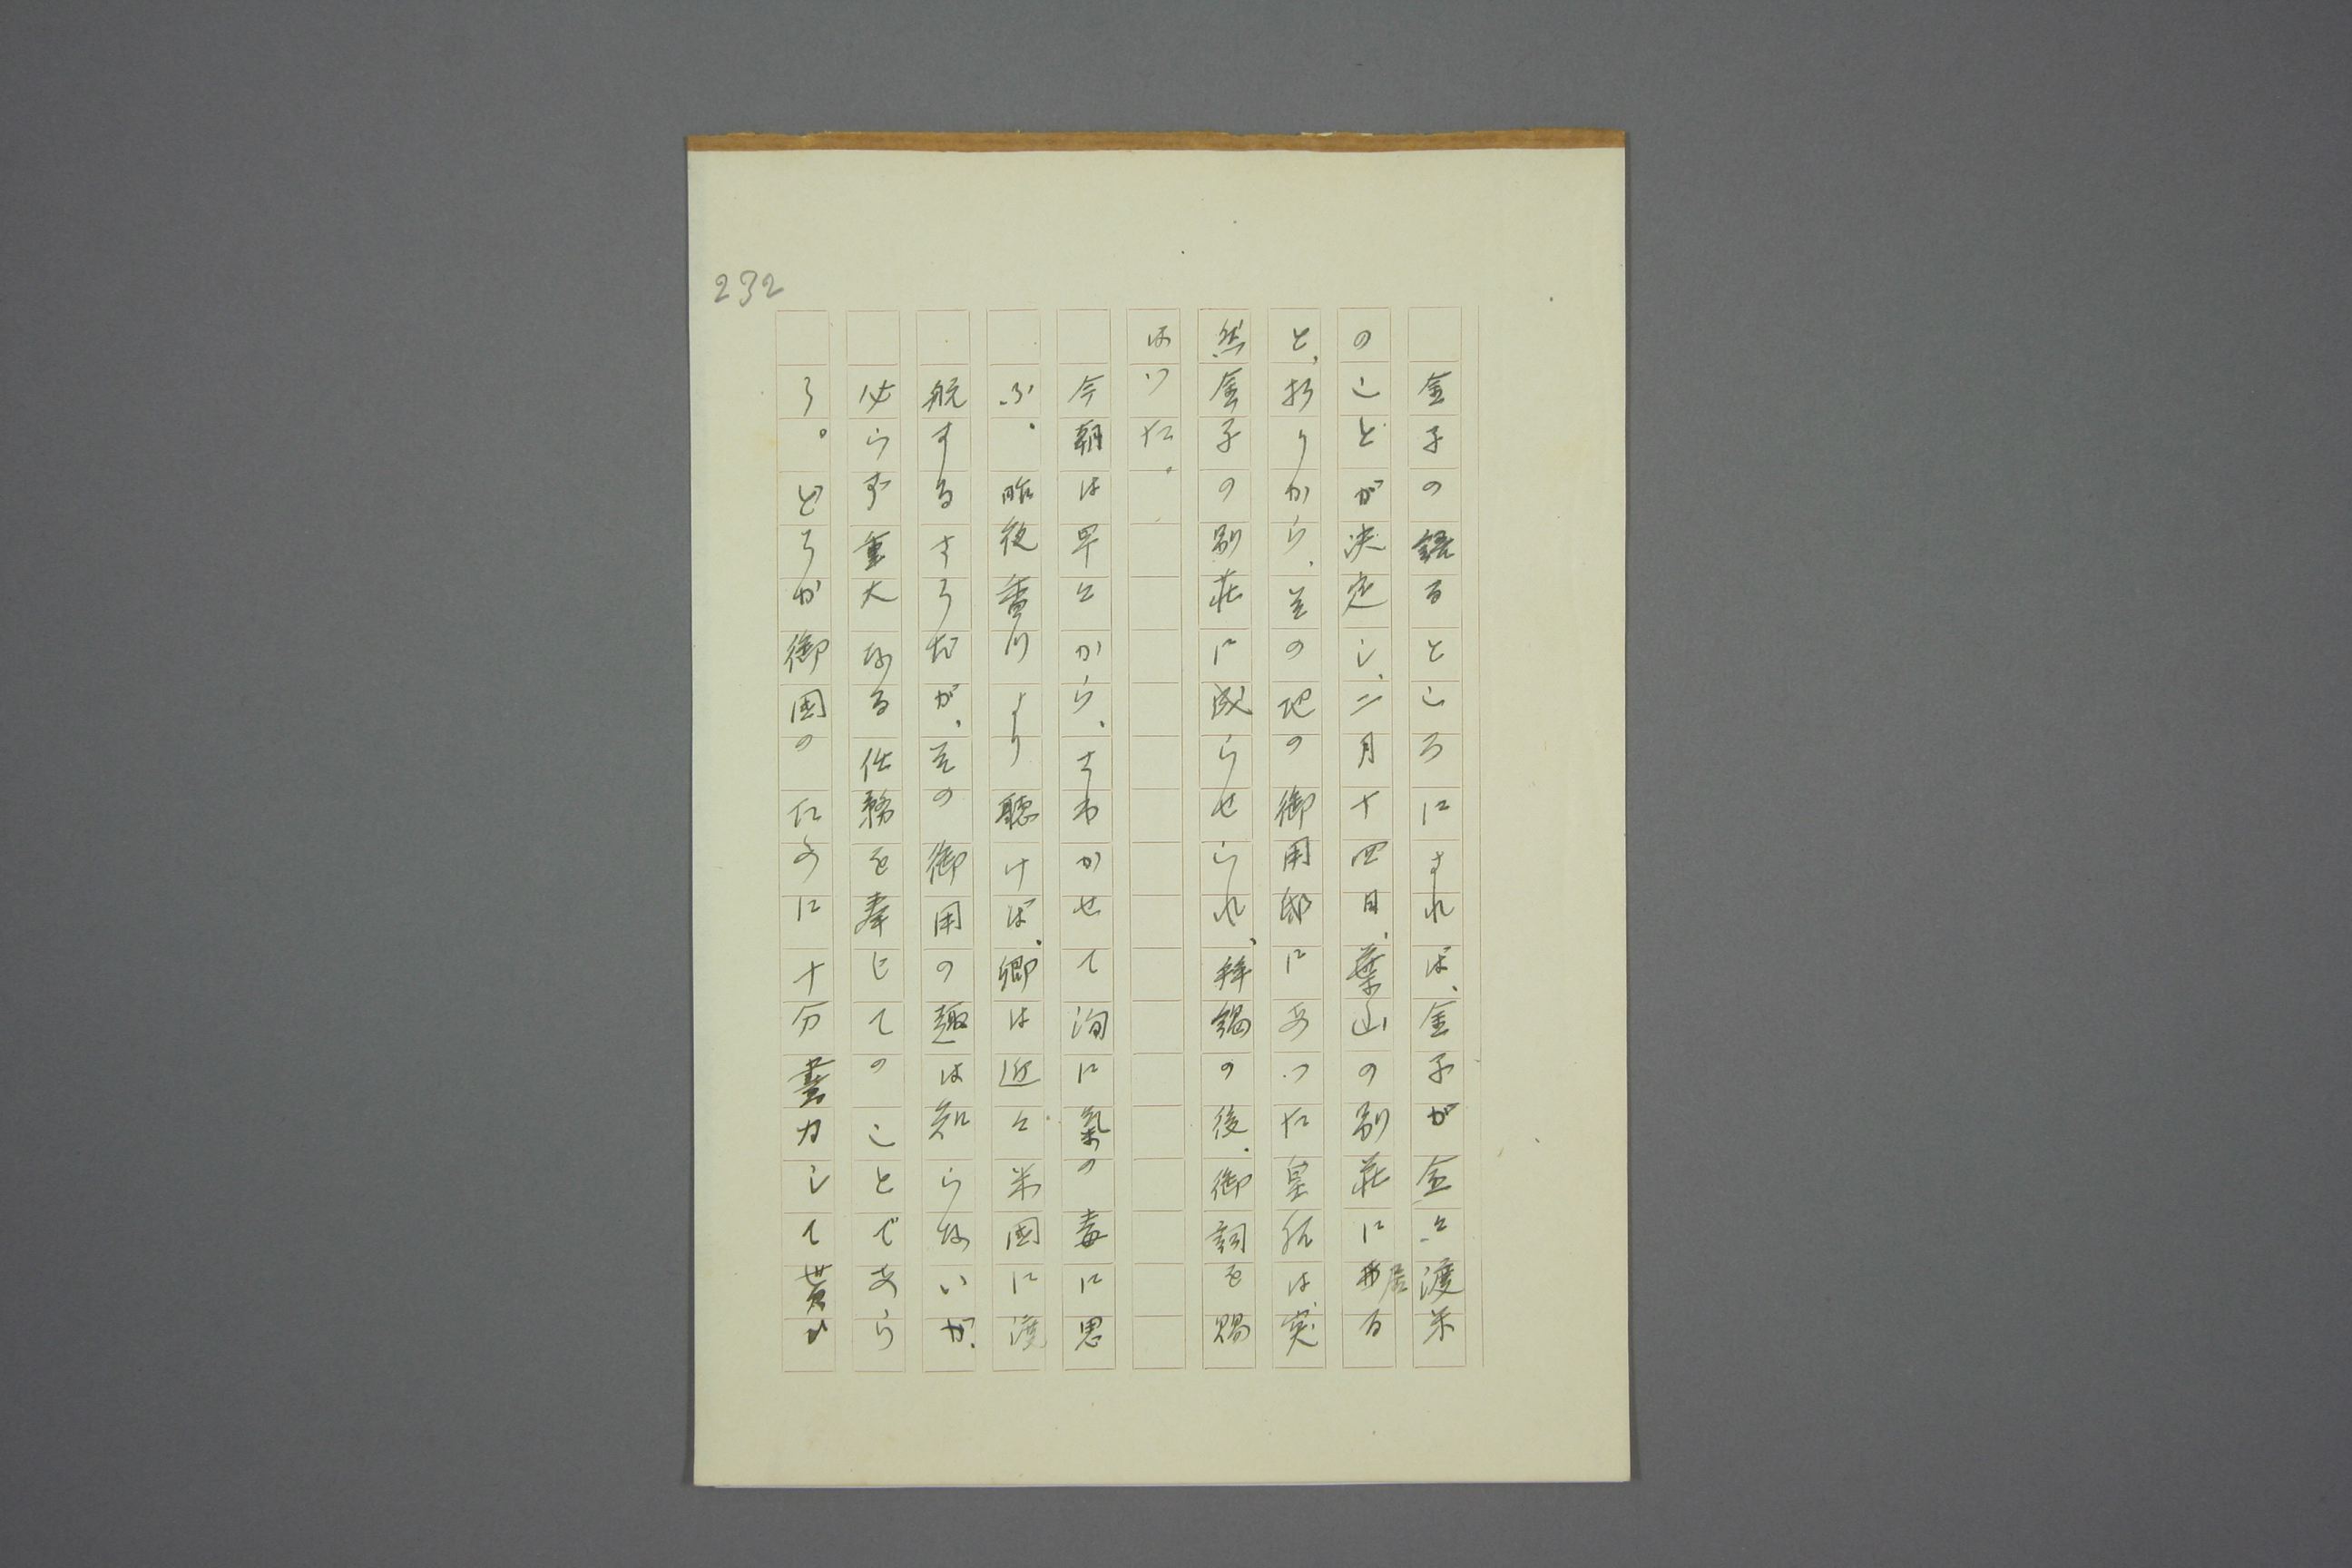 232
金子の語るところにすれば、金子が金々渡米
のことが決定し、二月十四日、葉山の別荘に居る
と、折りから、并の地の御用邸にあつた皇后は、突
然金子の別荘に成らせられ、拝謁の後、御詞を賜
はつた。
今朝は早々からさわかせて洵に氣の毒に思
ふ。昨夜香川より聽けば、卿は近々米國に渡
航するさうだが、その御用の趣は知らないが、
必らず重大なる任務を奉じてのことであら
う。どうか御国のために十分盡力して貰ひ